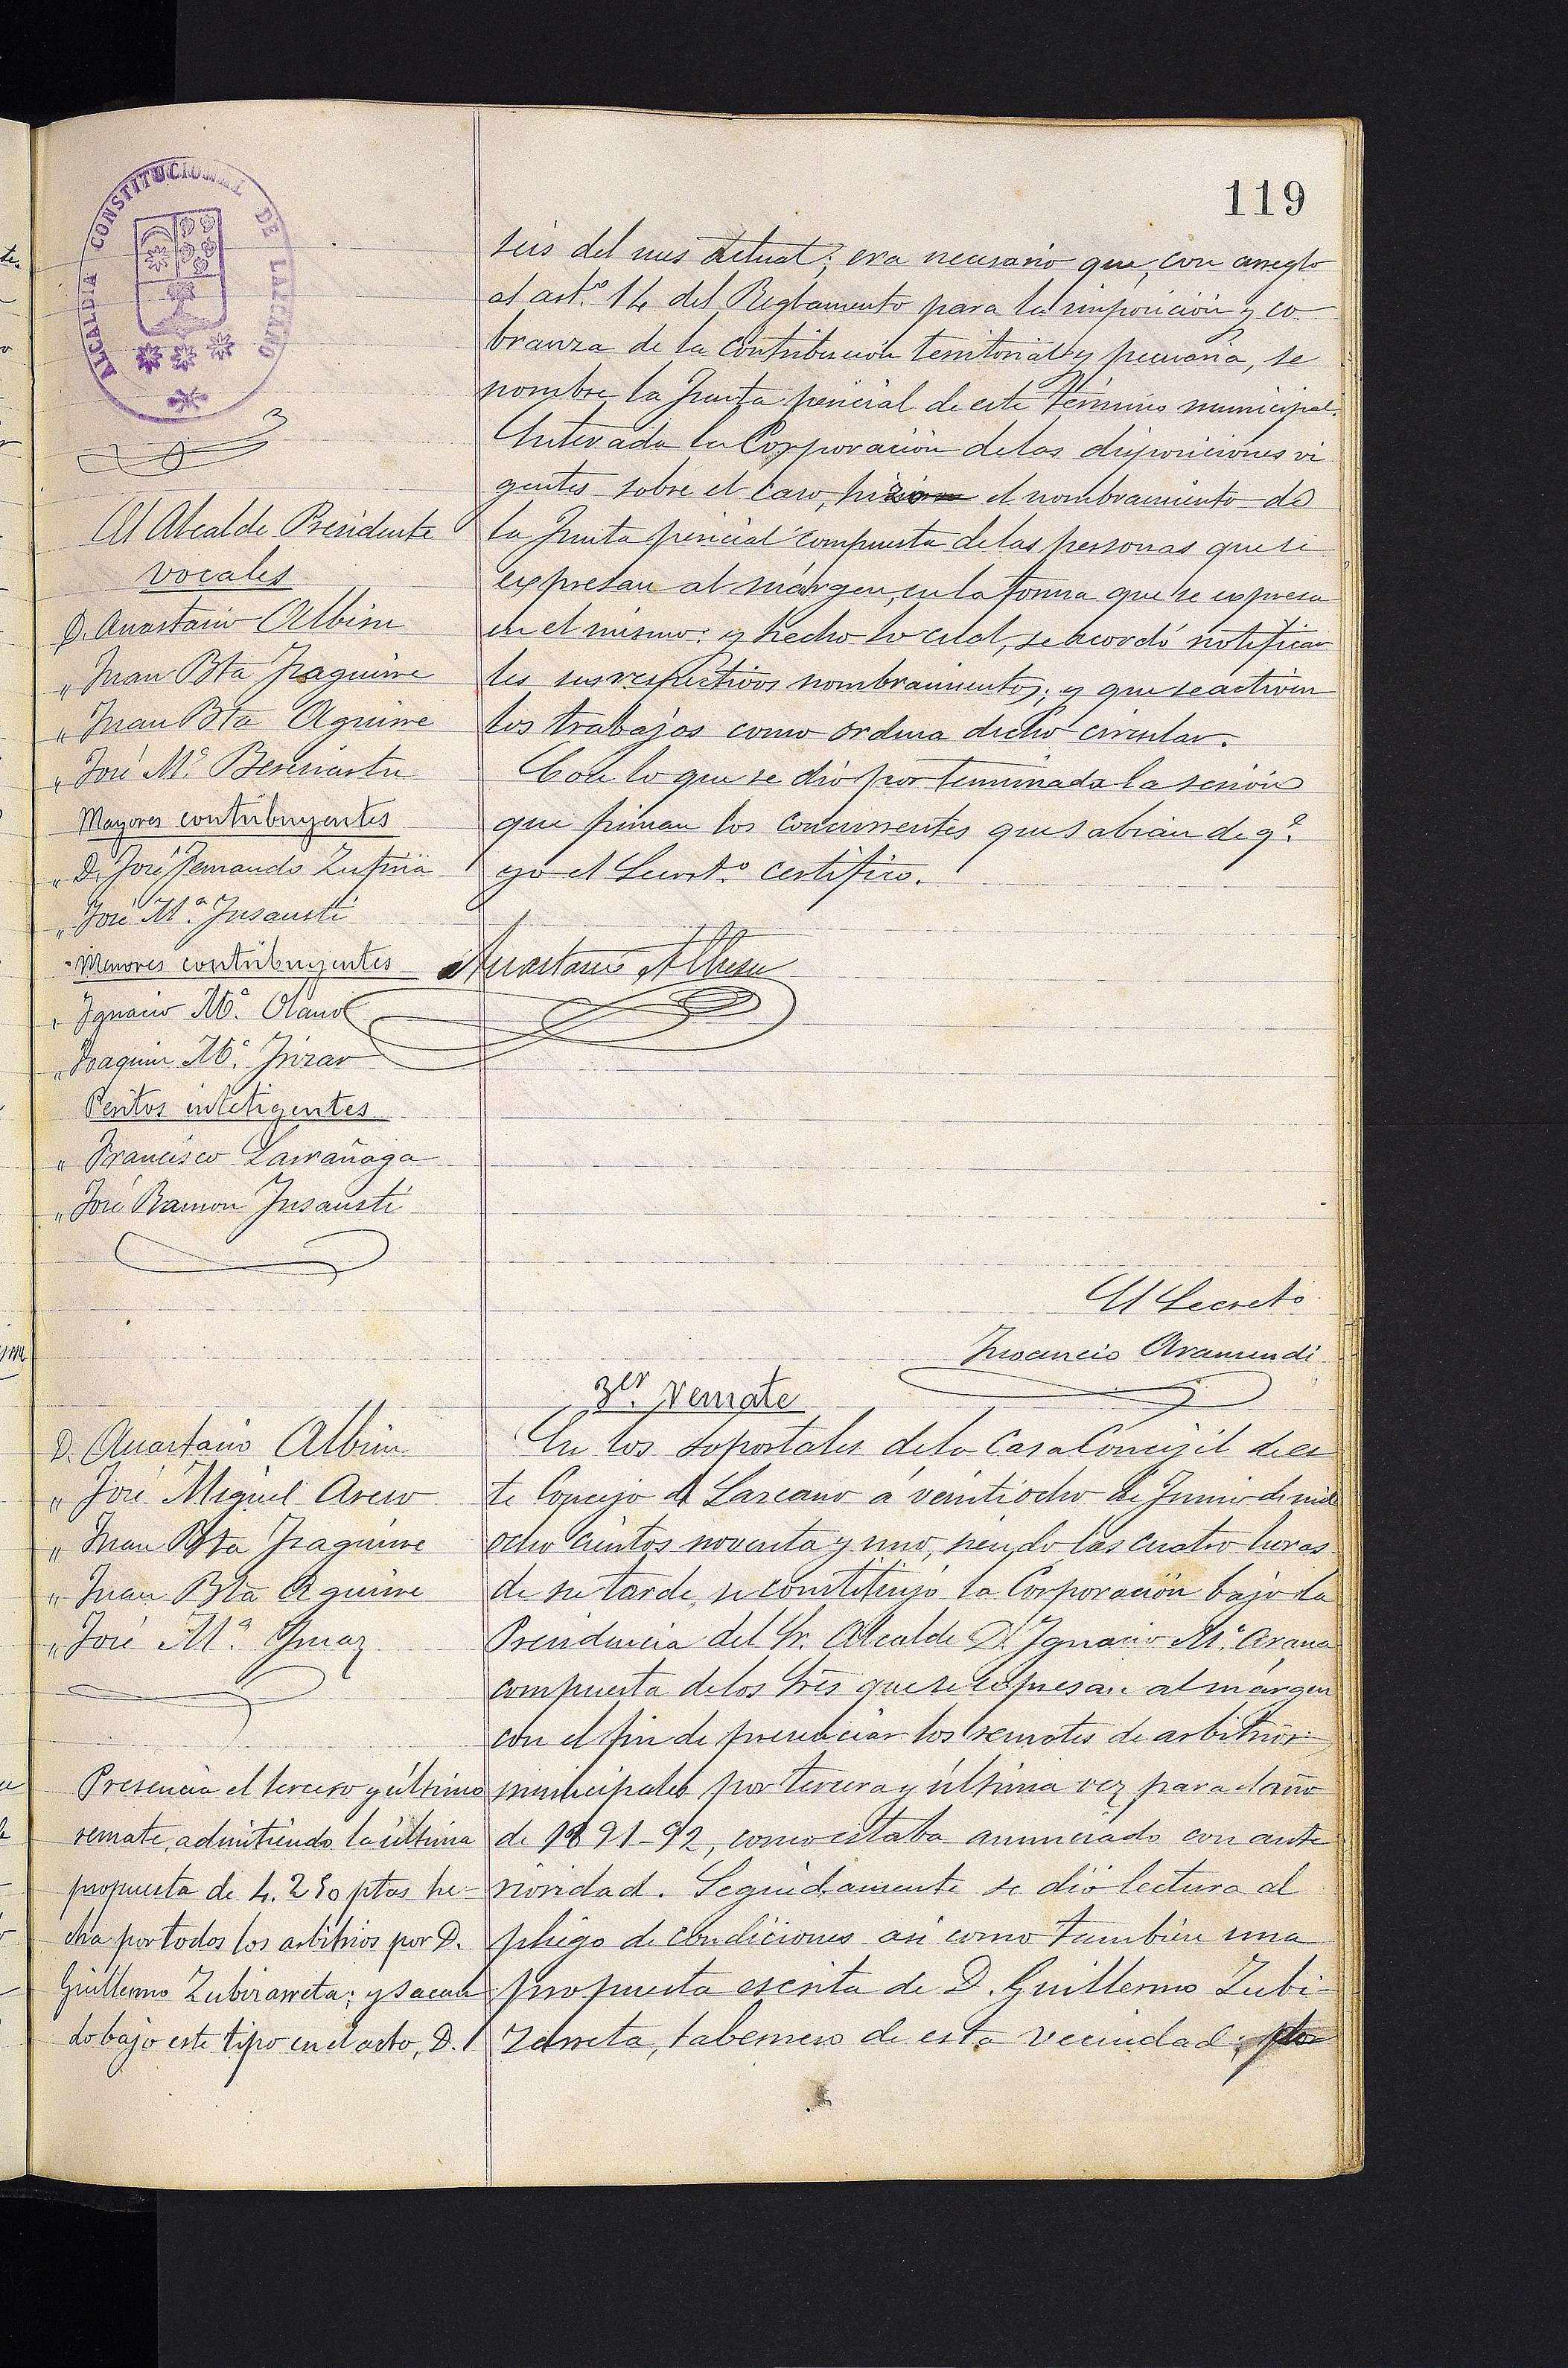 119
ALCALDIA CONSTITUCIONAL DE LAZCANO
seis del mes actual; era necesario que, con arreglo
al art.º 14 del Reglamento para la imposición y co
branza de la contribución territorial y pecuaria, se
nombre la Junta pericial de este término municipal.
Enterada la Corporación de las disposiciones vi
gentes sobre el caso, hizo el nombramiento de
la Junta pericial compuesta de las personas que se
expresan al márgen, en la forma que se expresa
en el mismo: y hecho lo cual, se acordó notificar
les sus respectivos nombramientos; y que se activen
los trabajos como ordena dicho circular.
Con lo que se dió por terminada la sesión
que firman los concurrentes que sabian de q.e
yo el Secret.º certifico.
Anastasio Albisu
El Alcalde Presidente
vocales
D. Anastasio Albisu
" Juan Bta Iraguirre
" Juan Bta Aguirre
" José M.ª Beresiartu
Mayores contribuyentes
" D. José Fernando Zufiria
" José M.ª Insausti
Menores contribuyentes
" Ignacio M.ª Olano
" Joaquin M.ª Irizar
Peritos inteligentes
" Francisco Larrañaga
" José Ramon Insausti
El Secretº
Inocencio Aramendi
3er. remate
En los soportales de la Casa Concejil de es
te Concejo de Lazcano á veintiocho de Junio de mil
ocho cientos noventa y uno, siendo las cuatro horas
de su tarde, se constituyó la Corporación bajo la
Presidencia del Sr. Alcalde D. Ignacio M.ª Arana
compuesta de los Sres que se expresan al márgen
con el fin de presenciar los remates de arbitrios
municipales por tercera y última vez para el año
de 1891-92, como estaba anunciado con ante
rioridad. Seguidamente se dió lectura al
pliego de condiciones asi como tambien una
propuesta escrita de D. Guillermo Zubi-
zarreta, tabernero de esta vecindad,
D. Anastasio Albisu
" José Miguel
" Juan Bta Iraguirre
" Juan Bta Aguirre
" José M.ª Imaz
Presencia el tercero y último
remate, admitiendo la última
propuesta de 4.250 ptas he-
cha por todos los arbitrios por D.
Guillermo Zubizarreta; y sacan
do bajo este tipo en el acto, D.